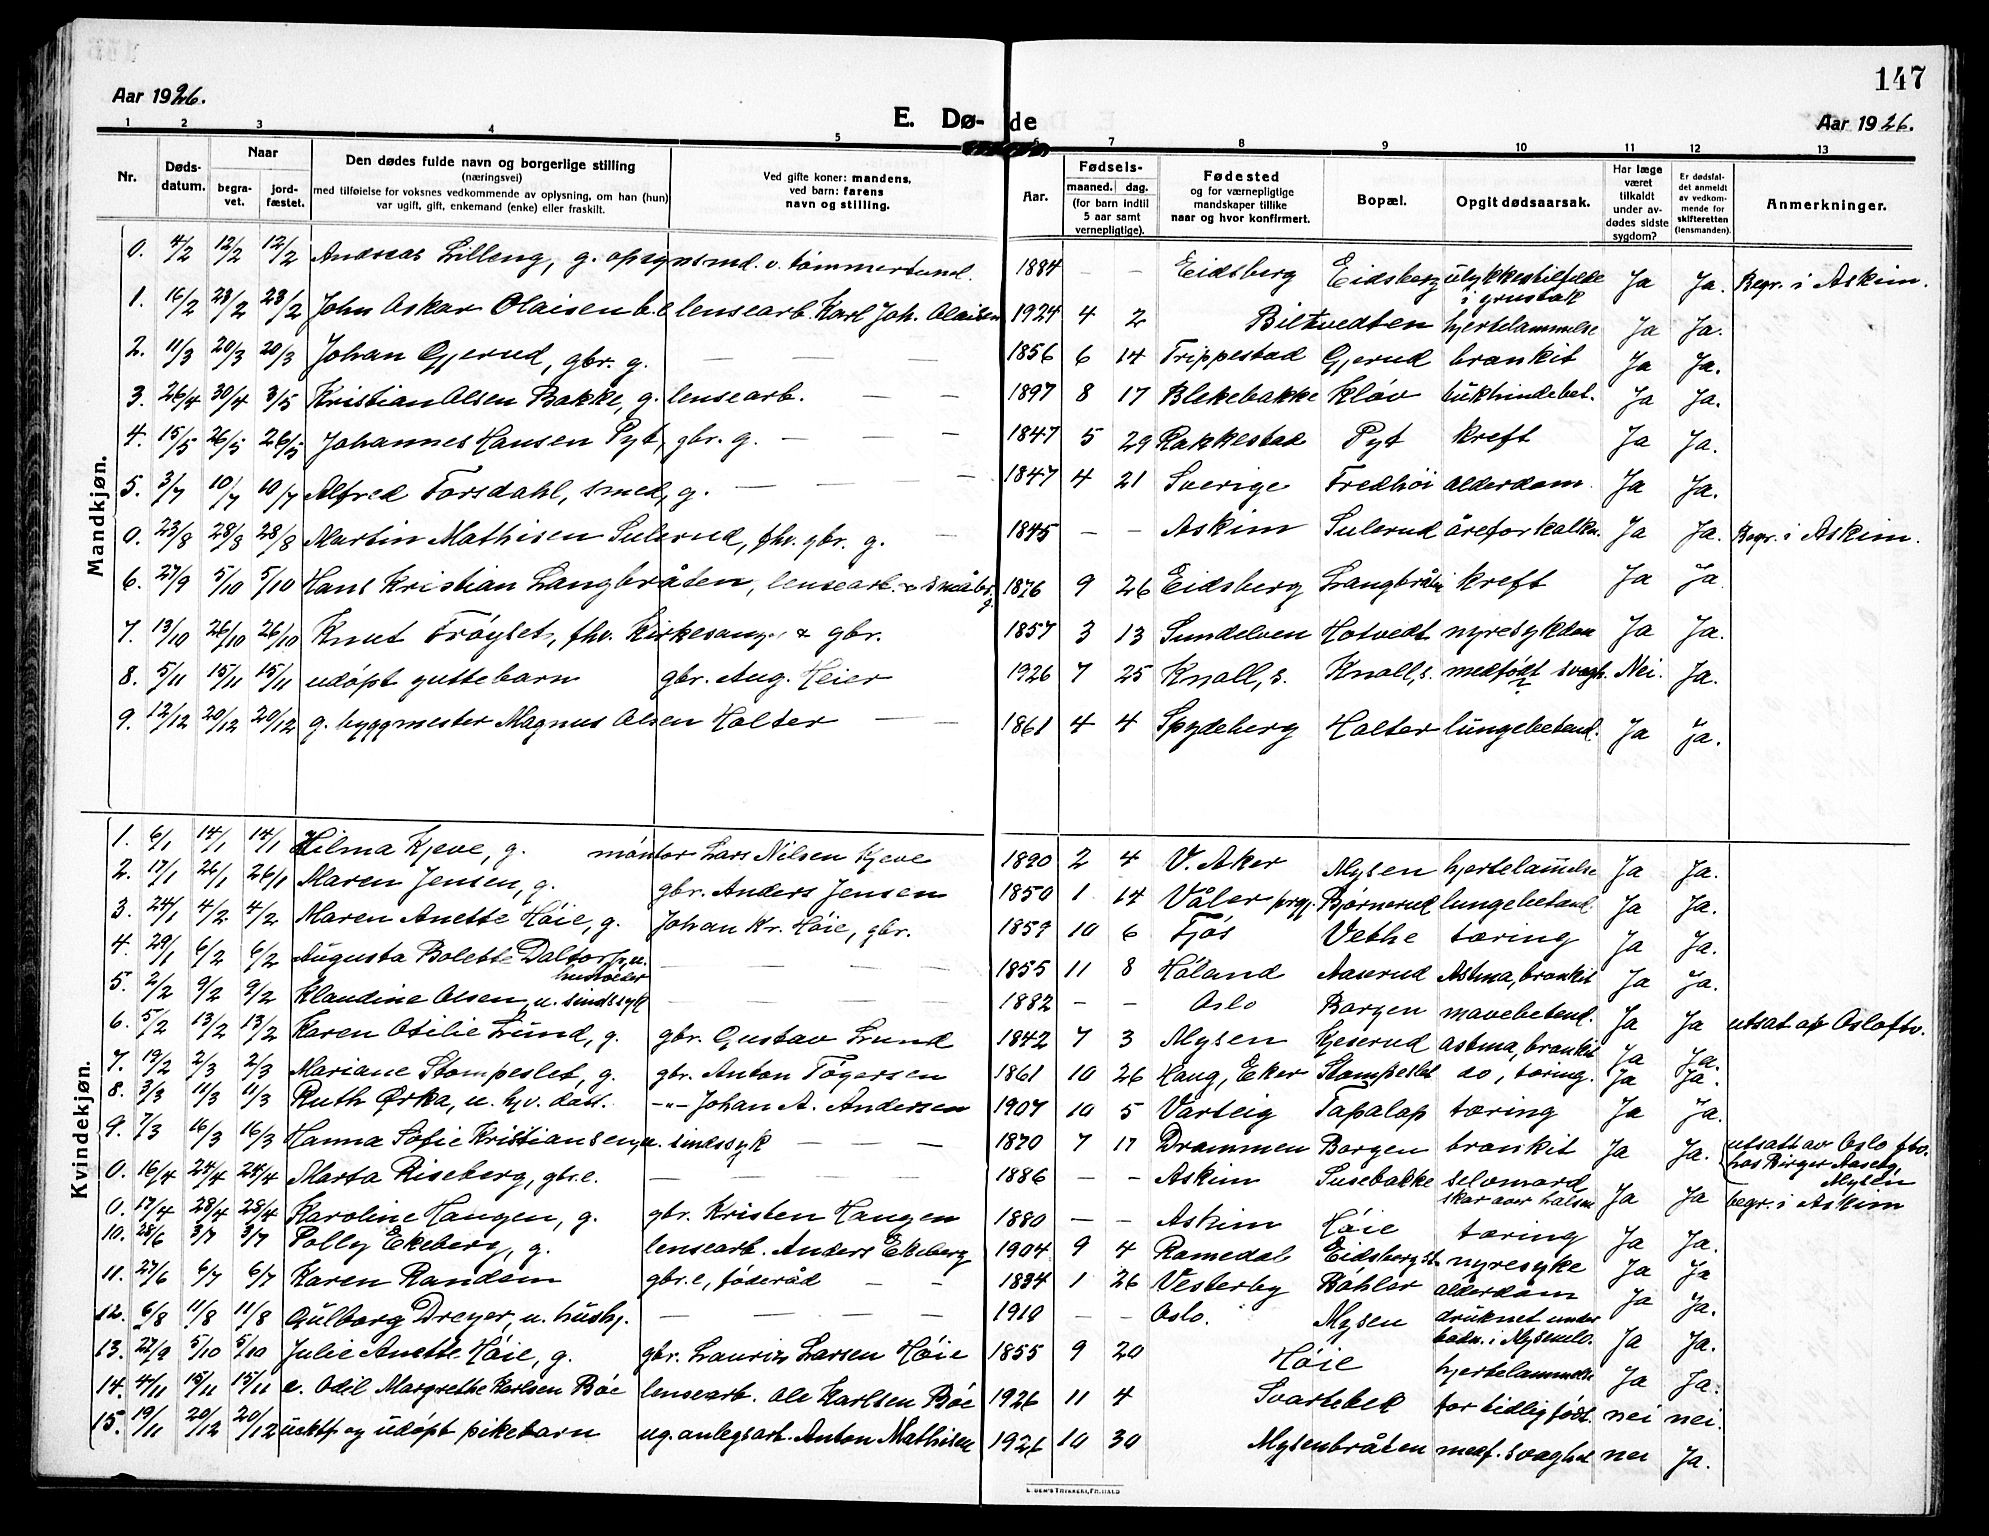 147
Aar 1926.
E. Dø- de
Aar 1926.
1 2 3 4 5 6 7 8 9 10 11 12 13
Nr.
Døds-datum.
Naar
begra-vet.
jord-fæstet.
Den dødes fulde navn og borgerlige stilling
(næringsvei)
med tilføielse for voksnes vedkommende av oplysning, om han (hun)
var ugift, gift, enkemand (enke) eller fraskilt.
Ved gifte koner: mandens,
ved barn: farens
navn og stilling.
Aar.
Fødsels-
maaned. dag.
(for barn indtil
5 aar samt
vernepligtige).
Fødested
og for værnepligtige
mandskaper tillike
naar og hvor konfirmert.
Bopæl.
Opgit dødsaarsak.
Har læge
været
tilkaldt
under av-
dødes sidste
sygdom?
Er dødsfal-
det anmeldt
av vedkom-
mende for
skifteretten
(lensmanden).
Anmerkninger.
Mandkjøn.
0. 4/2 12/2 12/2 Andreas Lilleng, g. opsynsmd. v. tømmertund. 1884 – – Eidsberg Eidsberg ulykkestilfelde i grustak Ja Ja. Begr. i Askim.
1. 16/2 23/2 23/2 John Oskar Olaisen b.e lensearb. Karl Joh. Olaisen 1924 4 2 Biltvedten hjertelammelse Ja Ja.
2. 11/3 20/3 20/3 Johan Gjerud, gbr. g. — — — 1856 6 14 Trippestad Gjerud bronkit Ja Ja.
3. 26/4 30/4 3/5 Kristian Olsen Bakke, g. lensearb. — — 1897 8 17 Blekebakke Kløv bukhindebet. Ja Ja.
4. 15/5 26/5 26/5 Johannes Hansen Pyt, gbr. g. — — — 1847 5 29 Rakkestad Pyt kreft Ja Ja.
5. 3/7 10/7 10/7 Alfred Torsdahl, smed, g. — — — 1847 4 21 Sverige Fredhøi alderdom. Ja Ja.
0. 23/8 28/8 28/8 Martin Mathisen Sulerud, fhv. gbr. g. — 1845 – – Askim Sulerud åreforkalkn. Ja Ja. Begr. i Askim.
6. 27/9 5/10 5/10 Hans Kristian Langbråten, lensearb. & småbr. g. 1876 9 26 Eidsberg Langbråten kreft Ja Ja
7. 13/10 26/10 26/10 Knut Trøyset, fhv. Kirkesanger & gbr. 1857 3 13 Sundelven Hotvedt nyresykdom Ja Ja.
8. 5/11 15/11 15/11 udøpt guttebarn gbr. Aug. Heier 1926 7 25 Knoll, s. Knoll, s. medfødt svagh. Nei. Ja.
9. 12/12 20/12 20/12 g. byggmester Magnus Olsen Holter — — 1861 4 4 Spydeberg Holter lungebetend. Ja Ja.
Kvindekjøn.
1. 6/1 14/1 14/1 Hilma Kjeve, g. montør Lars Nilsen Kjeve 1890 2 4 V. Aker Mysen hjertelammelse Ja Ja.
2. 17/1 26/1 26/1 Maren Jensen, g. gbr. Anders Jensen 1850 1 14 Våler prgj. Bjørnerud lungebetænd. Ja Ja.
3. 24/1 4/2 4/2 Maren Anette Høie, g. Johan Kr. Høie, gbr. 1859 10 6 Fjøs Vethe tæring Ja Ja.
4. 29/1 6/2 6/2 Augusta Bolette Daltorp, u. — — — 1855 11 8 Høland Aaserud Astma, bronkit Ja Ja.
5. 2/2 9/2 9/2 Klaudine Olsen, u. sindssyk — — — 1882 – – Oslo Borgen mavebetend. Ja Ja utsat av Oslo ftv.
6. 5/2 13/2 13/2 Karen Otilie Lund, g. gbr. Gustav Lund 1842 7 3 Mysen Kjeserud astma, bronkit Ja Ja.
7. 19/2 2/3 2/3 Mariane Stompeslet, g. gbr. Anton Togersen 1861 10 26 Haug, Eker Stompeslet do, tæring. Ja Ja.
8. 3/3 11/3 11/3 Ruth Ørka, u. hjv. datt. –"– Johan A. Andersen 1907 10 5 Varteig Tapalap tæring Ja Ja.
9. 7/3 16/3 16/3 Hanna Sofie Kristiansen, u. sindssyk — — — 1870 7 17 Drammen Borgen bronkit Ja Ja. utsatt av Oslo ftv. hos Birger Aaseng, Mysen
0. 16/4 24/4 24/4 Marta Riseberg, gbr.e. — — — 1886 – – Askim Susebakke selvmord skar over halsen Ja Ja begr. i Askim
0. 17/4 28/4 28/4 Karoline Haugen, g. gbr. Kristen Haugen 1880 – – Askim Høie tæring Ja Ja.
10. 28/6 3/7 3/7 Polly Ekeberg, g. lensearb. Anders Ekeberg 1904 9 4 Romedal Eidsberg st. nyresyke Ja Ja
11. 27/6 6/7 6/7 Karen Randem gbr.e, føderåd — — 1834 1 26 Vesterby Bøhler alderdom Ja Ja.
12. 6/8 11/8 11/8 Gulborg Dreyer, u. hushj. — — — 1910 – – Oslo. Mysen druknet under badn. i Mysenelv. Ja Ja.
13. 27/9 5/10 5/10 Julie Anette Høie, g. gbr. Lauritz Larsen Høie 1855 9 20 Høie hjertelammelse Ja Ja.
14. 4/11 15/11 15/11 e. Odil Margrethe Karlsen Bøe lensearb. Ole Karlsen Bøe 1926 11 4 Svartebek for tidlig født. nei nei.
15. 19/11 20/12 20/12 uekte og udøpt pikebarn ug. anlegsarb. Anton Mathisen 1926 10 30 Mysenbråten medf. svaghet nei Ja.